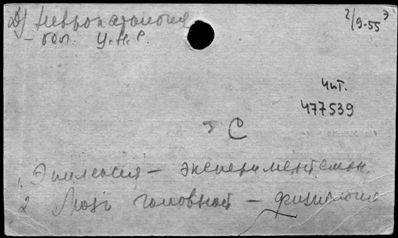 Д) Невропатология 2/9-55 э
– бол. Ц.Н.С.
чит.
477539
С
1. Эпилепсия – эксперименталн.
2 Мозг головной – физиология